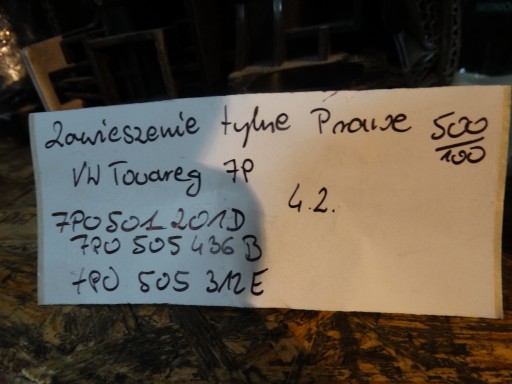 Zawieszenie tylne Prawe 500/100
VW Touareg 7P
4.2.
7P0501201D
7P0 505 436 B
7P0 505 312E